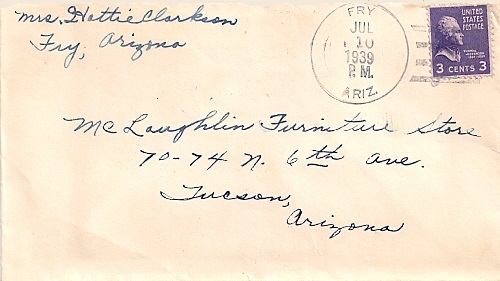 Mrs. Hattie Clarkson
Fry, Arizona
FRY
JUL
10
1939
P.M.
ARIZ.
UNITED
STATES
POSTAGE
3 CENTS 3
McLaughlin Furniture Store
70-74 N. 6th Ave.
Tucson,
Arizona